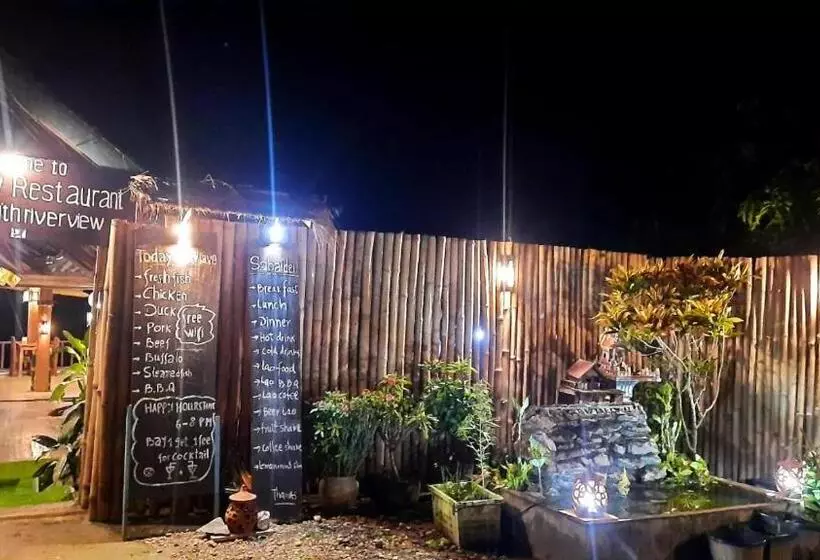 me to
Restaurant
ith river view
Today
ave
fresh fish
Chicken
Duck
Pork
Beef
Buffalo
Steamed fish
B.B.Q
free
wifi
HAPPY HOURS TIME
6-8 PM
BAY 1 get 1 free
for
COCKTAIL
Sabaidee
Breakfast
Lunch
Dinner
Hot drink
cold drinks
Lao food
Lao B.B.Q
Lao coffee
Beer LAO
fruit shake
Coffee shake
Thanks